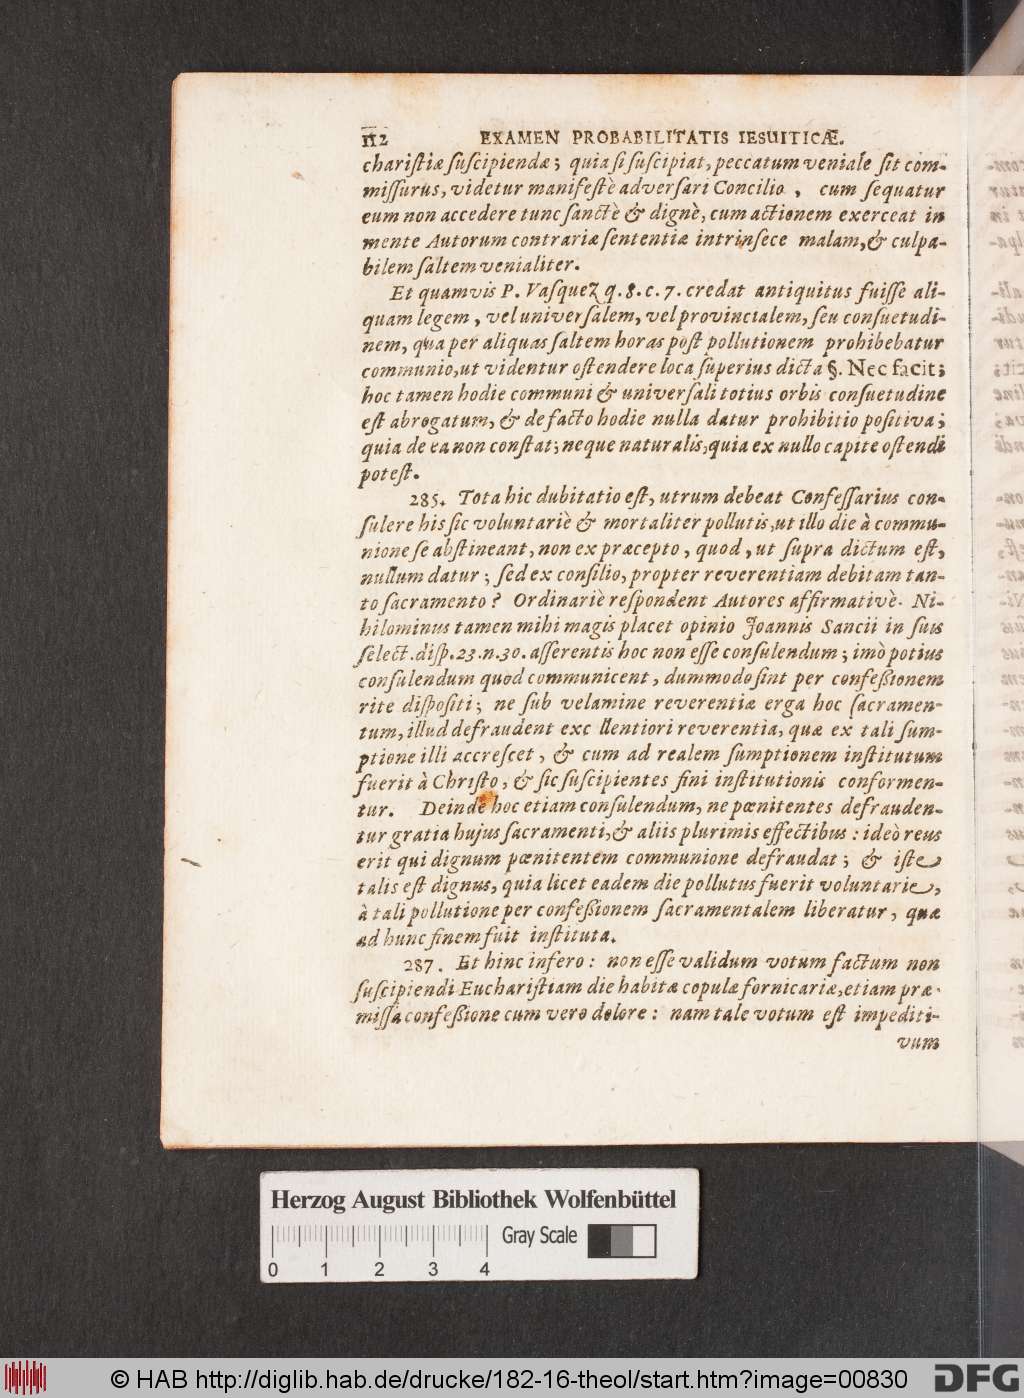 112 EXAMEN PROBABILITATIS IESUITICÆ.
chariſtiæ ſuſcipiendæ; quia ſi ſuſcipiat, peccatum veniale ſit com-
miſſurus, videtur manifeſtè adverſari Concilio, cum ſequatur
eum non accedere tunc ſanctè & dignè, cum actionem exerceat in
mente Autorum contrariæ ſententiæ intrinſece malam, & culpa-
bilem ſaltem venialiter.
Et quamvis P. Vaſquez q. 8. c. 7. credat antiquitus fuiſſe ali-
quam legem, vel univerſalem, vel provincialem, ſeu conſuetudi-
nem, qua per aliquas ſaltem horas poſt pollutionem prohibebatur
communio, ut videntur oſtendere loca ſuperius dicta §. Nec facit;
hoc tamen hodie communi & univerſali totius orbis conſuetudine
eſt abrogatum, & de facto hodie nulla datur prohibitio poſitiva;
quia de ea non conſtat; neque naturalis, quia ex nullo capite oſtendi
poteſt.
285. Tota hic dubitatio eſt, utrum debeat Confeſſarius con-
ſulere his ſic voluntariè & mortaliter pollutis, ut illo die à commu-
nione ſe abſtineant, non ex præcepto, quod, ut ſupra dictum eſt,
nullum datur; ſed ex conſilio, propter reverentiam debitam tan-
to ſacramento? Ordinariè reſpondent Autores affirmativè. Ni-
hilominus tamen mihi magis placet opinio Joannis Sancii in ſuis
ſelect. diſp. 23. n. 30. aſſerentis hoc non eſſe conſulendum; imò potius
conſulendum quod communicent, dummodo ſint per confeßionem
rite diſpoſiti; ne ſub velamine reverentiæ erga hoc ſacramen-
tum, illud defraudent exc llentiori reverentia, quæ ex tali ſum-
ptione illi accreſcet, & cum ad realem ſumptionem inſtitutum
fuerit à Chriſto, & ſic ſuſcipientes fini inſtitutionis conformen-
tur. Deinde hoc etiam conſulendum, ne pœnitentes defrauden-
tur gratia hujus ſacramenti, & aliis plurimis effectibus: ideò reus
erit qui dignum pœnitentem communione defraudat; & iſte
talis eſt dignus, quia licet eadem die pollutus fuerit voluntarie,
à tali pollutione per confeßionem ſacramentalem liberatur, quæ
ad hunc finem fuit inſtituta.
287. Et hinc infero: non eſſe validum votum factum non
ſuſcipiendi Euchariſtiam die habitæ copulæ fornicariæ, etiam præ-
miſſa confeßione cum vero dolore: nam tale votum eſt impediti-
vum
Herzog August Bibliothek Wolfenbüttel
Gray Scale
0 1 2 3 4
© HAB http://diglib.hab.de/drucke/182-16-theol/start.htm?image=00830
DFG